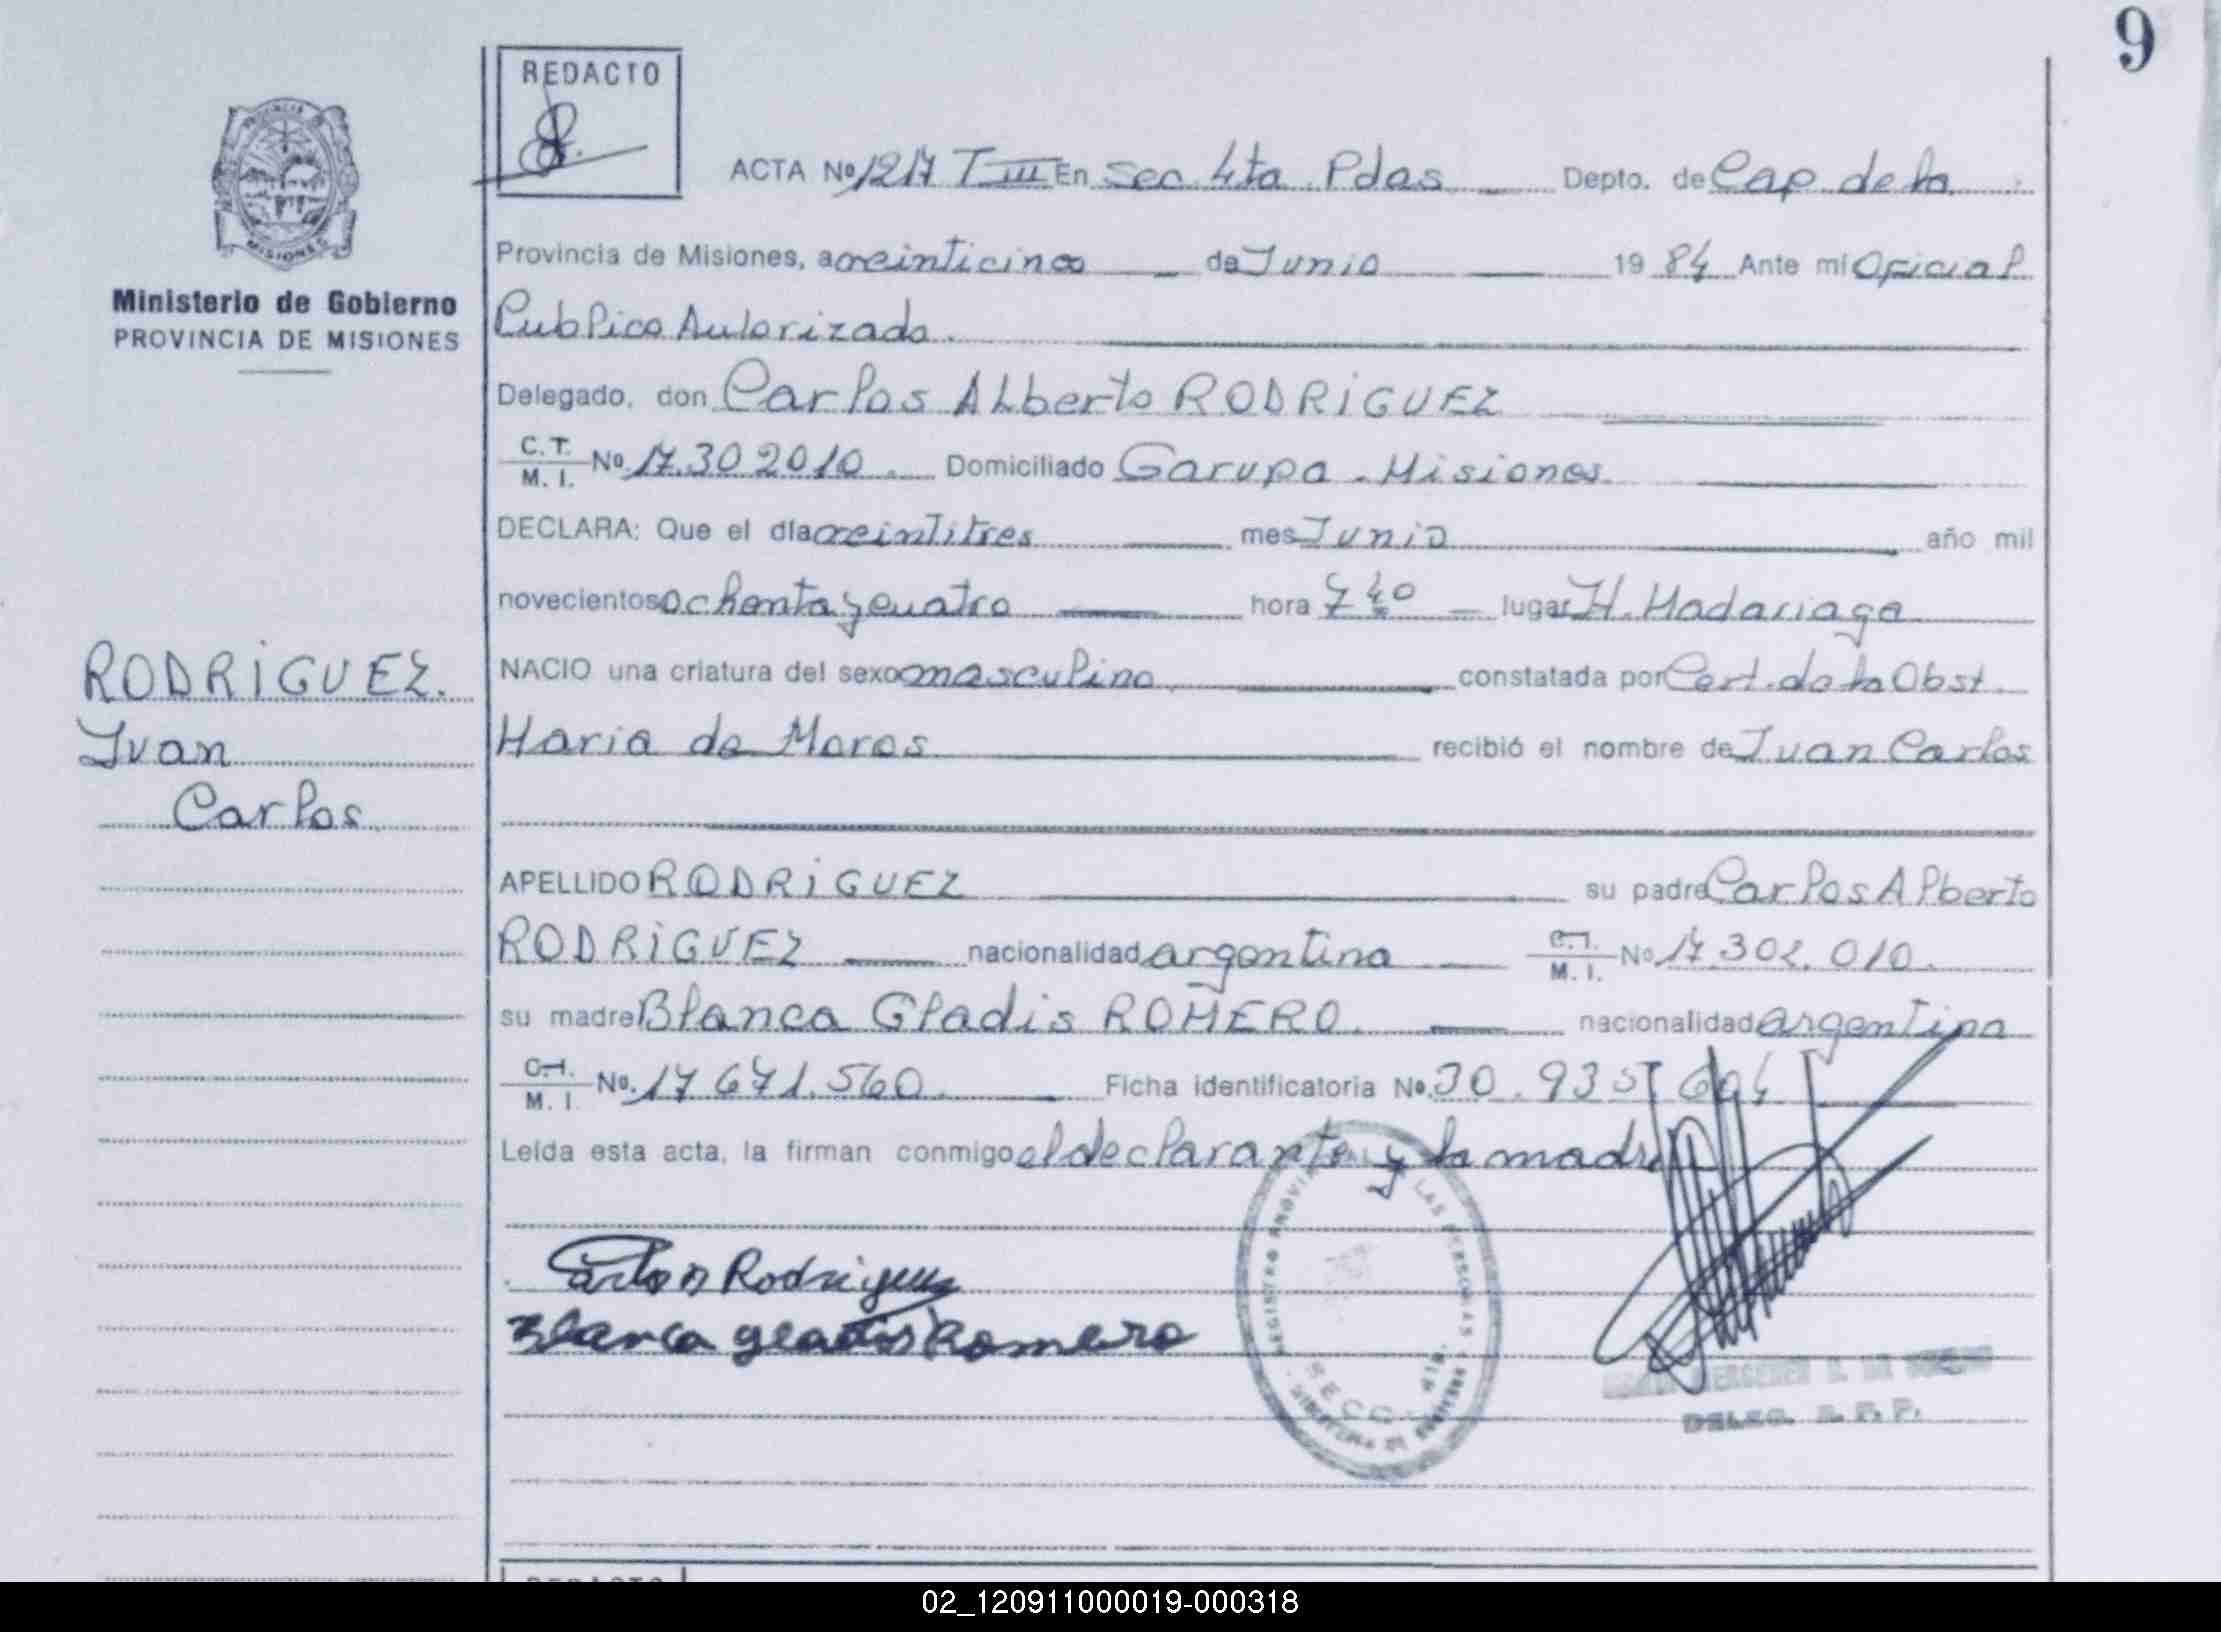 9
REDACTO
ACTA Nº 1217 T III En Sec. 4ta Pdas Depto. de Cap. de la
Provincia de Misiones, a veinticinco de Junio 19 84 Ante mí Oficial
Publico Autorizado.
Ministerio de Gobierno
PROVINCIA DE MISIONES
Delegado, don Carlos Alberto RODRIGUEZ
C.T. M. I. Nº 17.302010. Domiciliado Garupa - Misiones.
DECLARA: Que el día veintitres mes Junio año mil
novecientos ochenta y cuatro hora 7 40 lugar H. Madariaga
RODRIGUEZ.
Juan
Carlos
NACIO una criatura del sexo masculino constatada por Cert. de la Obst.
Maria de Moros recibió el nombre de Juan Carlos
APELLIDO RODRIGUEZ su padre Carlos Alberto
RODRIGUEZ nacionalidad argentina M. I. Nº 17.302.010.
su madre Blanca Gladis ROMERO. nacionalidad argentina
M. I. Nº. 17.671.560. Ficha identificatoria Nº. 30.935
Leída esta acta, la firman conmigo el declarante y la madre
Carlos Rodriguez
Blanca gladis Romero
REGISTRO PROVINCIAL LAS PERSONAS
SECC.
DELEG. R. P. P.
REDACTO
02_120911000019-000318